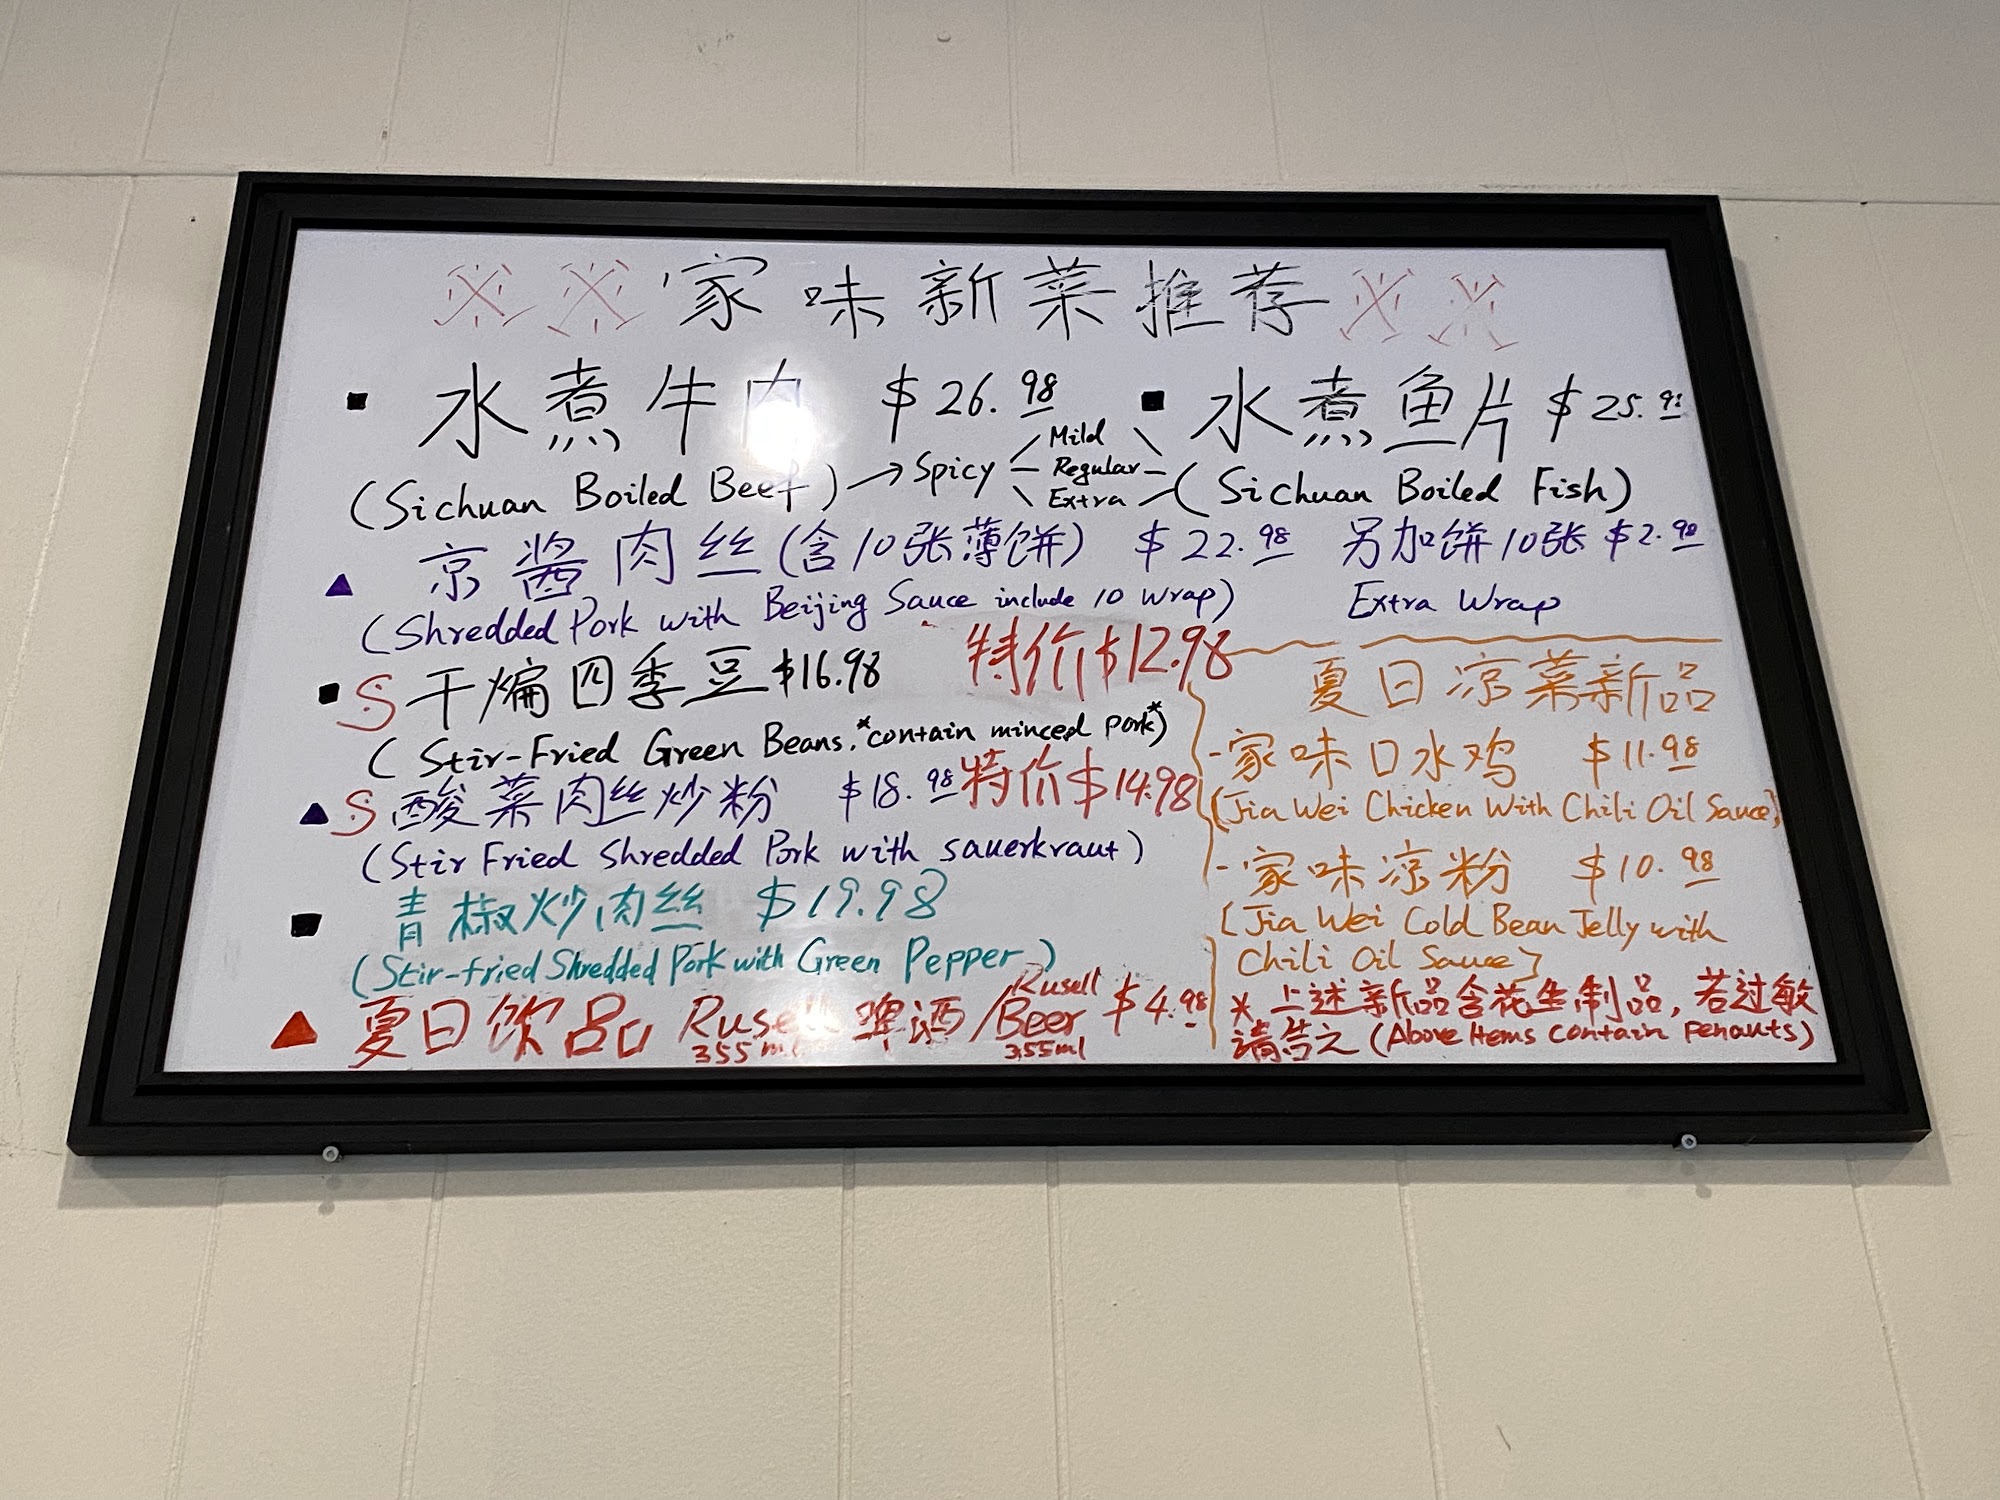 ※ ※ 家味新菜推荐 ※ ※
■ 水煮牛肉 $26.98 ■ 水煮鱼片 $25.98
(Sichuan Boiled Beef) → Spicy Mild Regular Extra (Sichuan Boiled Fish)
▲ 京酱肉丝(含10张薄饼) $22.98 另加饼10张 $2.98
(Shredded Pork with Beijing Sauce include 10 Wrap) Extra Wrap
■ S 干煸四季豆 $16.98 特价$12.98
(Stir-Fried Green Beans. *contain minced pork*)
▲ S 酸菜肉丝炒粉 $18.98 特价$14.98
(Stir Fried Shredded Pork with sauerkraut)
■ 青椒炒肉丝 $19.98
(Stir-fried Shredded Pork with Green Pepper)
▲ 夏日饮品 Rusell 啤酒 355ml / Rusell Beer 355ml $4.98
夏日凉菜新品
- 家味口水鸡 $11.98
(Jia Wei Chicken With Chili Oil Sauce)
- 家味凉粉 $10.98
(Jia Wei Cold Bean Jelly with
Chili Oil Sauce)
* 上述新品含花生制品,若过敏
请告之 (Above Items contain penauts)